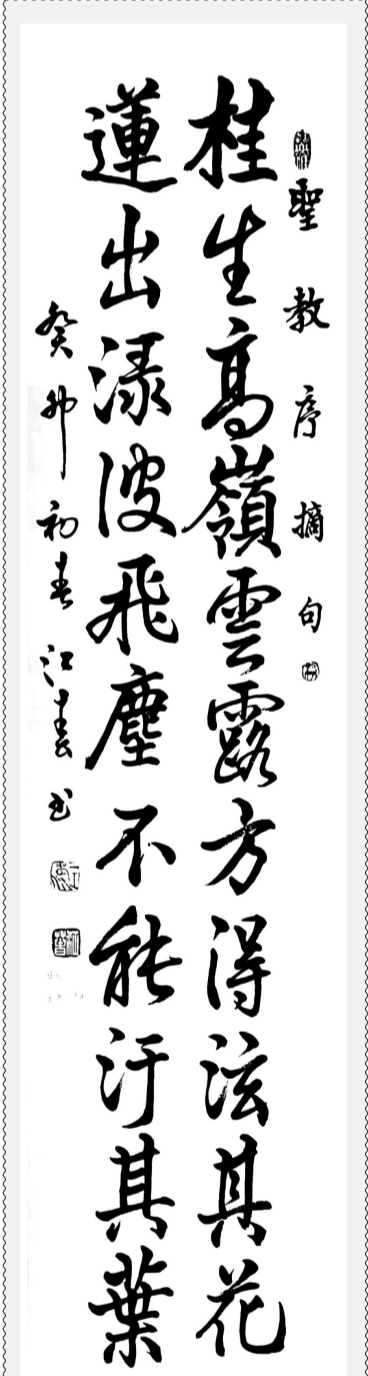 聖教序摘句
桂生高嶺雲露方得泫其花
蓮出淥波飛塵不能汙其葉
癸卯初春江春书